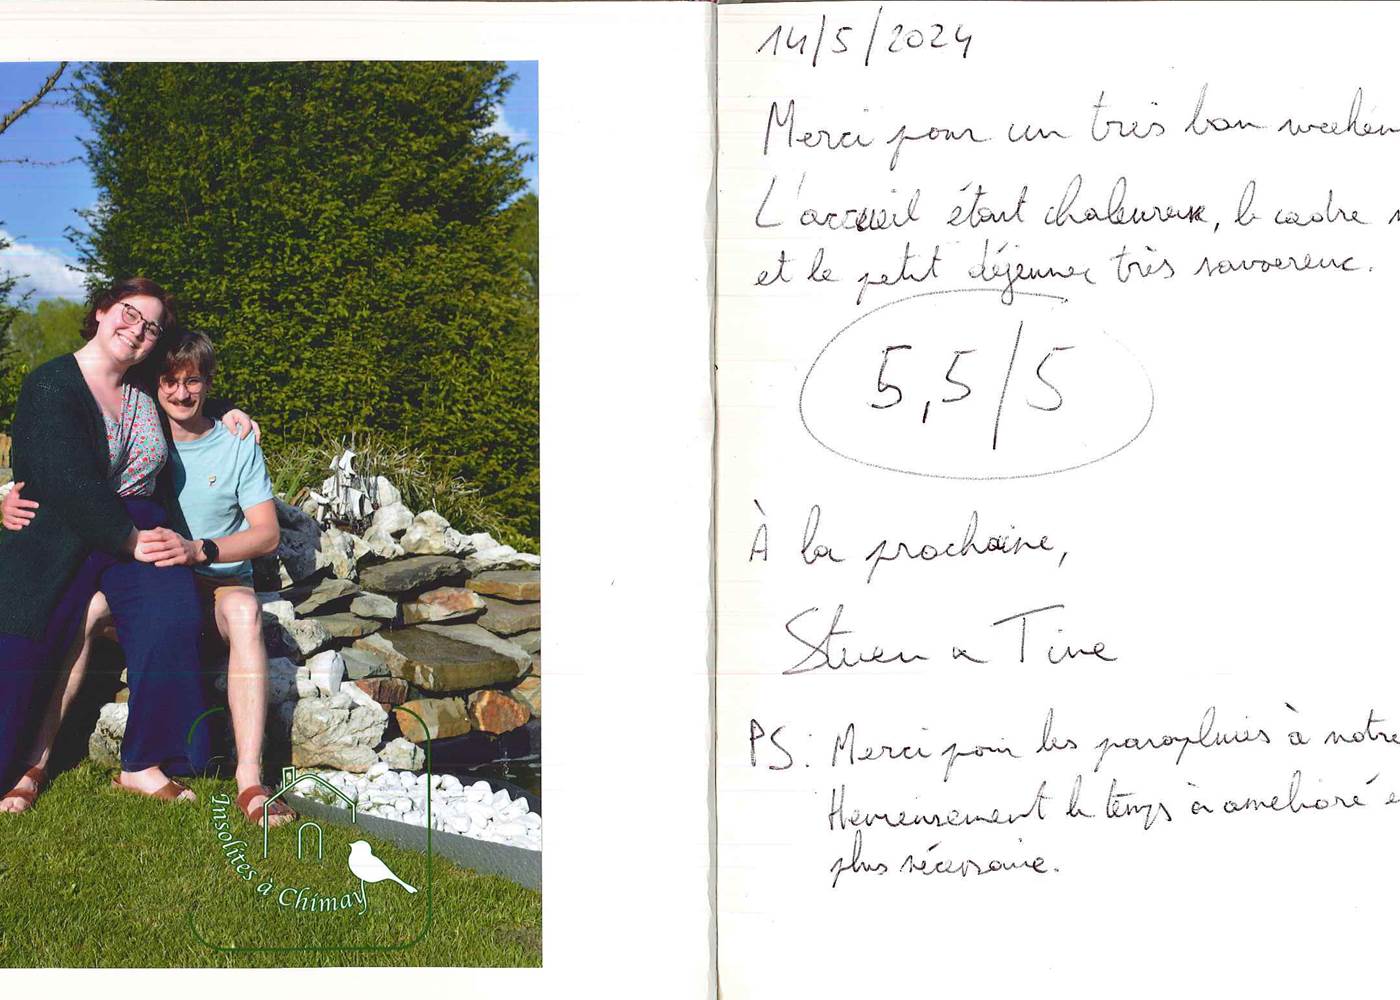 Insolites à Chimay
14/5/2024
Merci pour un très bon weeken
L'accueil étant chaleureux, le cadre
et le petit déjeuner très savoureux.
5,5/5
À la prochaine,
Steven & Tine
PS: Merci pour les parapluies à notre
Heureusement le temps à amélioré e
plus nécessaire.